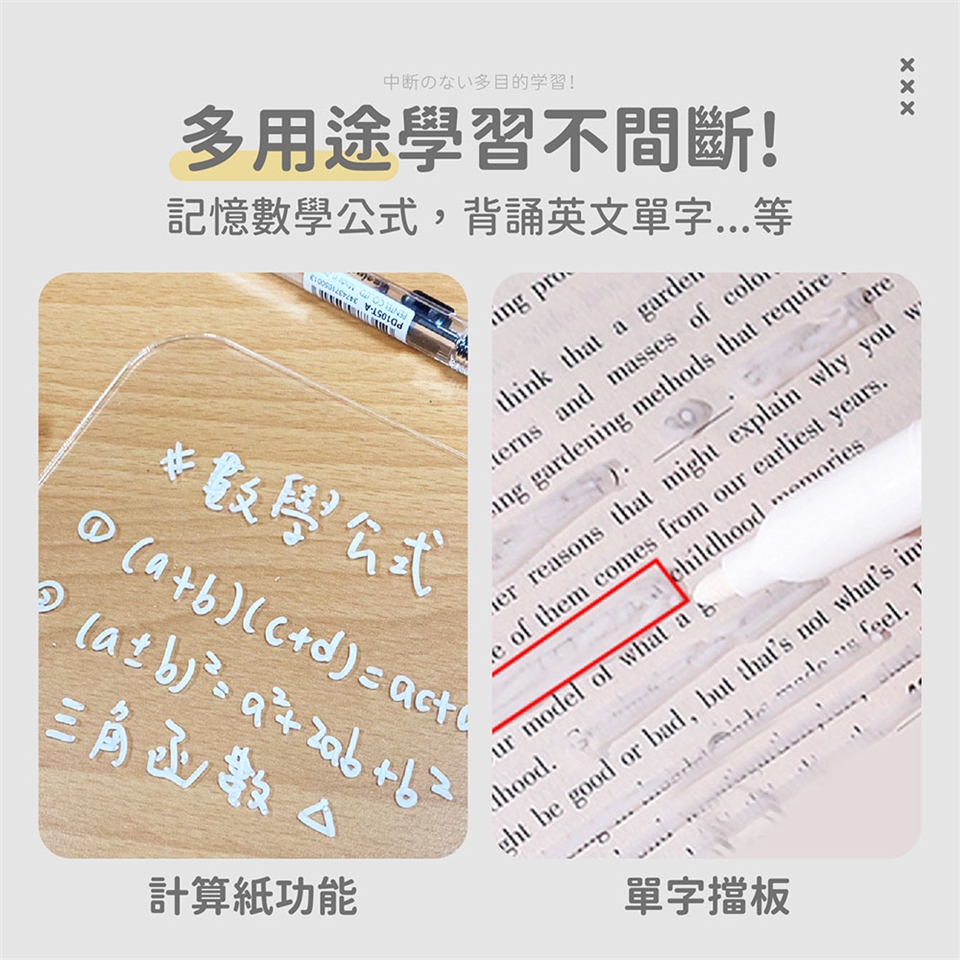 中断のない多目的学習!
多用途學習不間斷!
記憶數學公式，背誦英文單字...等
PD105T-A
3474371050013
PENTEL CO., LTD.
#數學公式
① (a+b)(c+d)=ac+a
② (a±b)²=a²±2ab+b²
三角函數△
ing pro
think that a garden
terns and masses of color
ng gardening methods that require
ere
er reasons that might explain why you w
e of them comes from our earliest years.
childhood memories
ur model of what a g
lhood.
ght be good or bad, but that's not what's im
made us feel.
計算紙功能
單字擋板